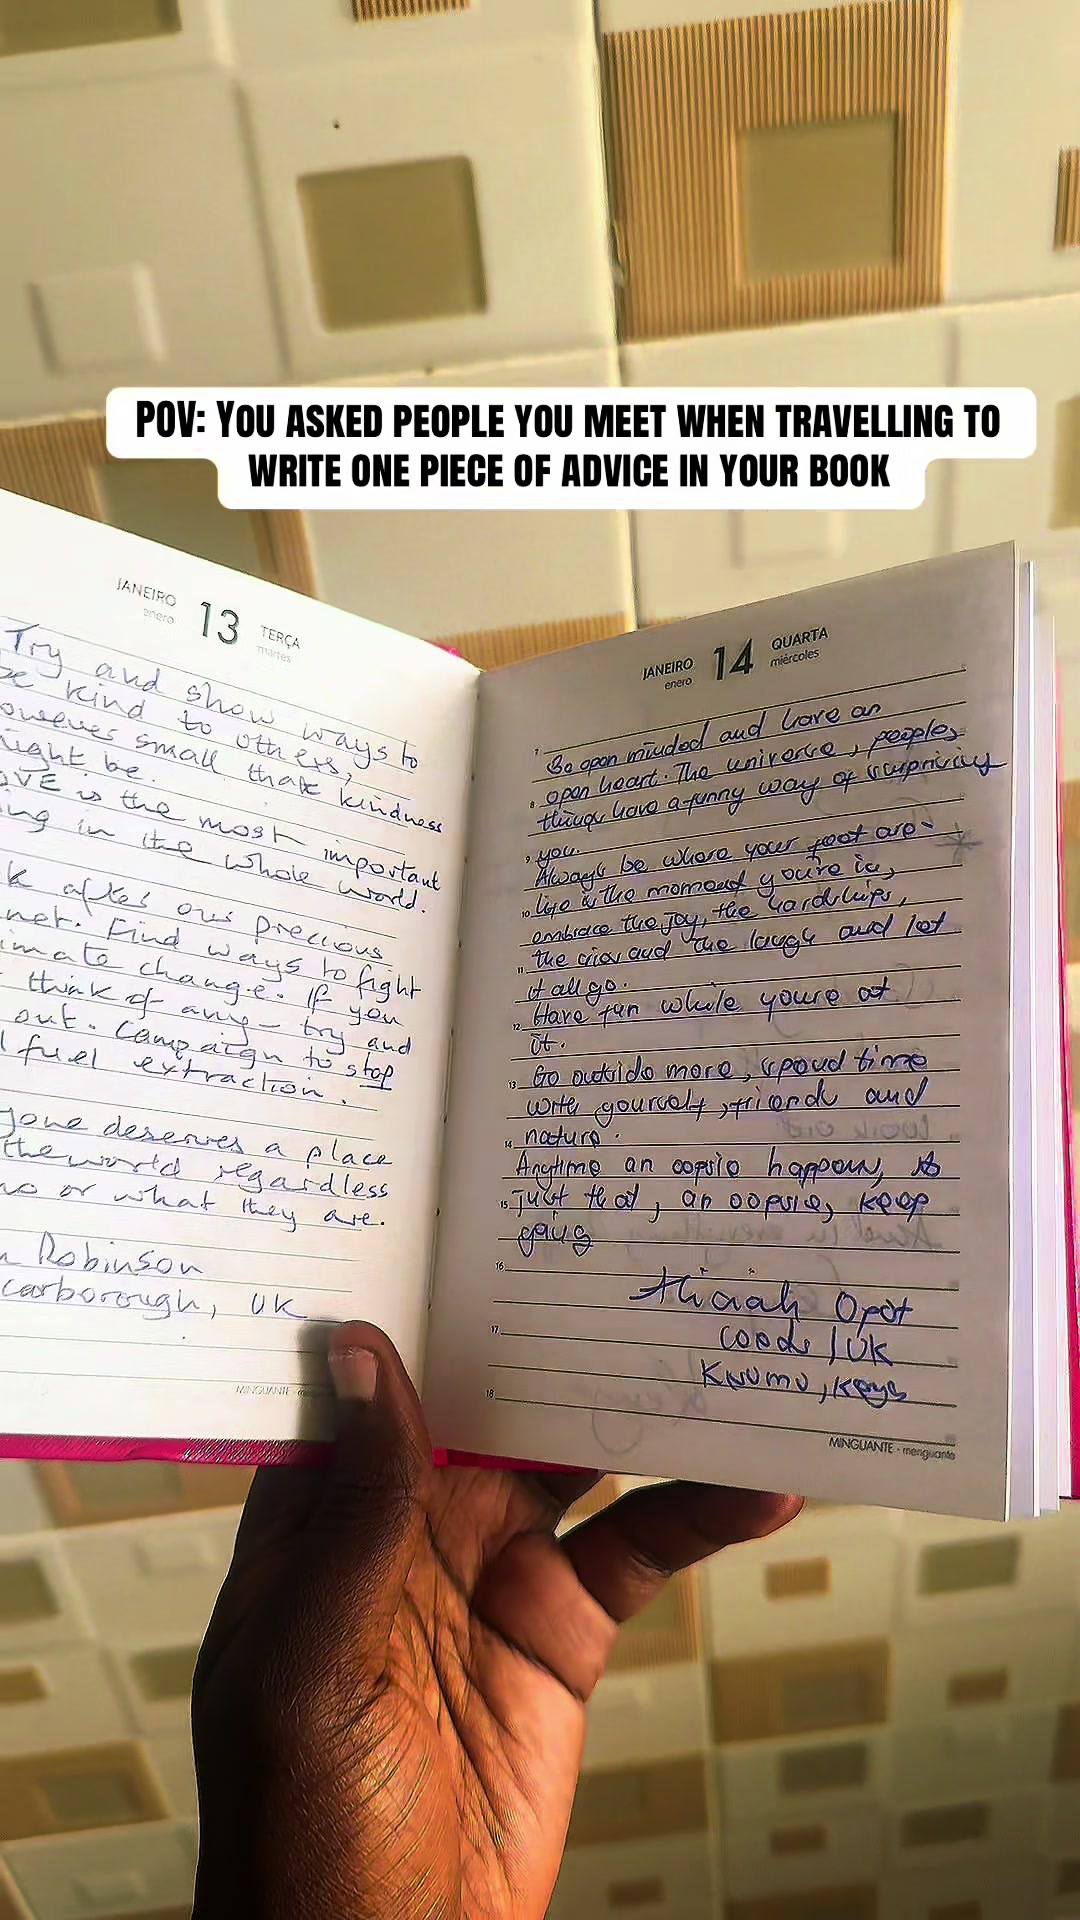 POV: YOU ASKED PEOPLE YOU MEET WHEN TRAVELLING TO
WRITE ONE PIECE OF ADVICE IN YOUR BOOK
JANEIRO 13 TERÇA
enero martes
Try and show ways to
be kind to others,
however small that kindness
might be.
LOVE is the most important
in the whole world.
after our precious
Find ways to fight
climate change. If you
think of any - try and
out. Campaign to stop
fuel extraction.
deserves a place
the world regardless
or what they are.
Robinson
Scarborough, UK
MINGUANTE
JANEIRO 14 QUARTA
enero miércoles
7
Be open minded and have an
8 open heart. The universe, people,
things have a funny way of surprising
9 you.
Always be where your feet are-
10 life is the moment you're in,
embrace the joy, the hardships,
11 the cries and the laugh and let
it all go.
12 Have fun while youre at
it.
13 Go outside more, spend time
with yourself, friends and
14 nature.
Anytime an oopsie happens, is
15 just that, an oopsie, keep
going
16
Opot
17 Leeds / UK
18
MINGUANTE - menguante